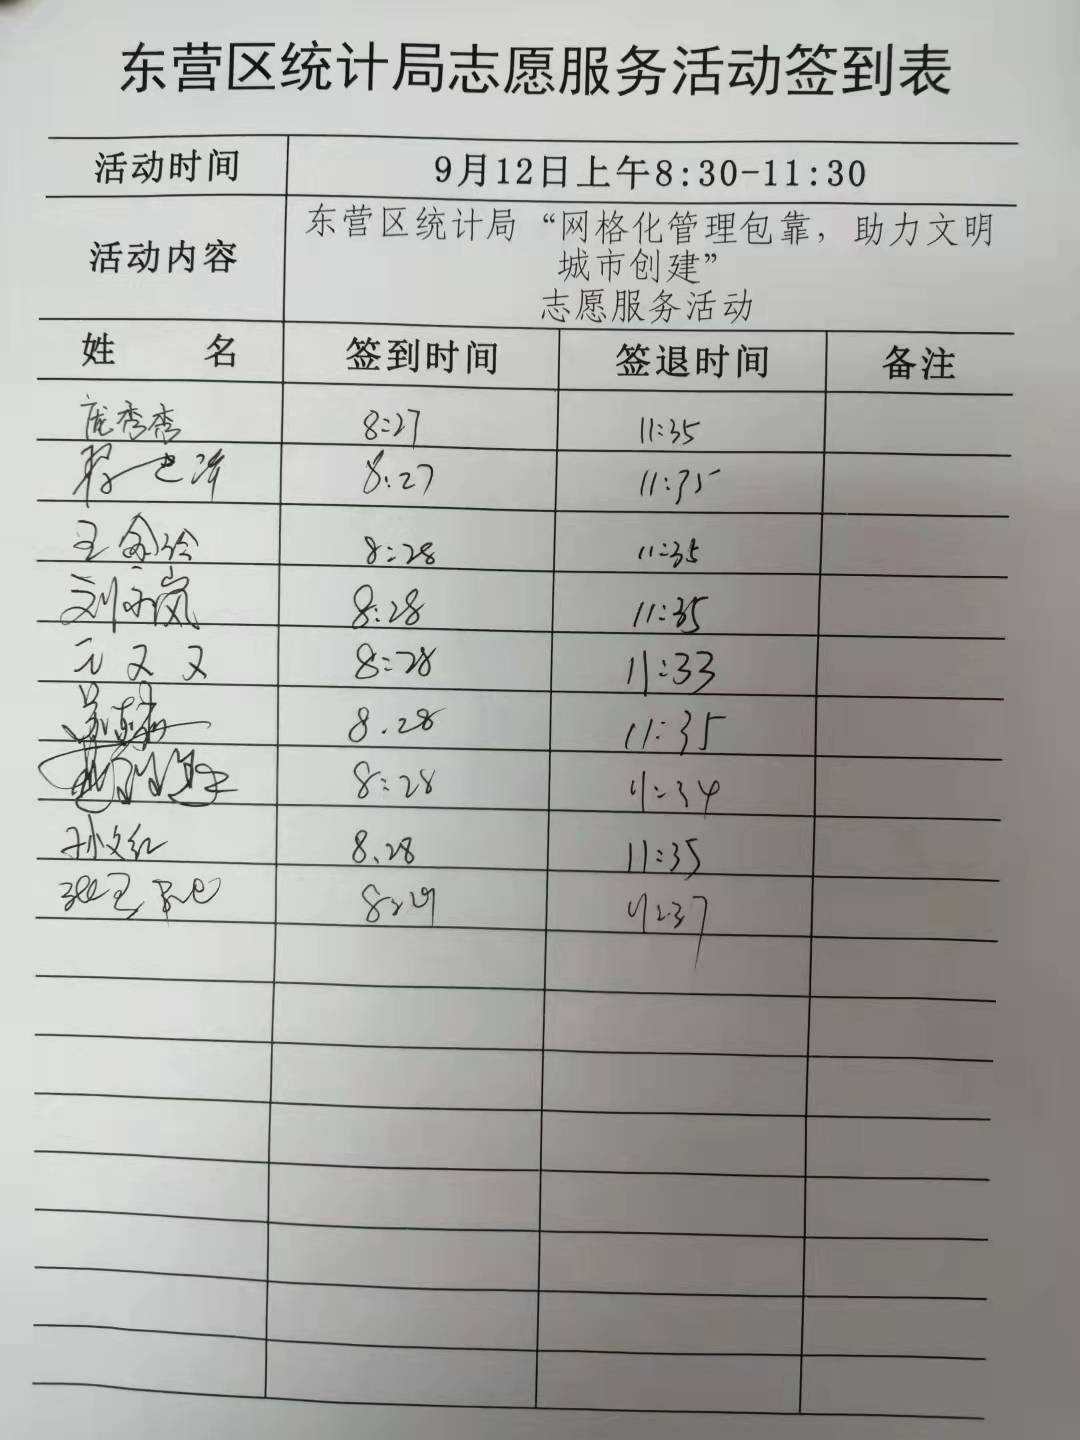 东营区统计局志愿服务活动签到表
活动时间 9月12日上午8:30-11:30
活动内容 东营区统计局“网格化管理包靠，助力文明
城市创建”
志愿服务活动
姓 名 签到时间 签退时间 备注
庞秀秀 8:27 11:35
8:27 11:35
王 8:28 11:35
刘 岚 8:28 11:35
8:28 11:33
8.28 11:35
8:28 11:34
孙文红 8.28 11:35
张玉 8:29 11:37